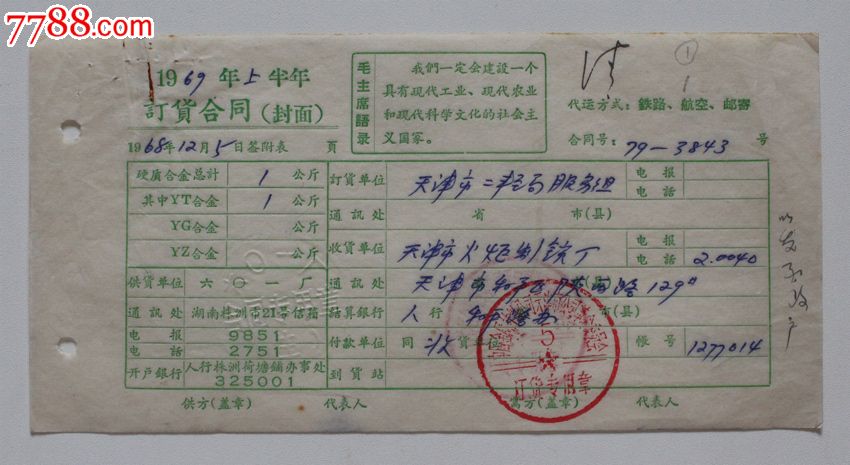 7788.com
1969年上半年
訂貨合同(封面)
1968年12月5日签附表 頁
毛主席語录
我們一定会建設一个
具有現代工业、現代农业
和現代科学文化的社会主
义国家。
①
1
代运方式：鉄路、航空、邮寄
合同号：79-3843 号
硬质合金总計 1 公斤
其中YT合金 1 公斤
YG合金 公斤
YZ合金 公斤
供貨单位 六〇一厂
通訊处 湖南株洲市21号信箱
电报 9851
电話 2751
开戶銀行 人行株洲荷塘鋪办事处
325001
訂貨单位 天津市二轻局服务组 电报
电話
通訊处 省 市(县)
收貨单位 天津市火炬制 厂 电报
电話 2.0040
通訊处 天津市和平 陕西路129号
結算銀行 人行 市(县)
付款单位 同收貨单位 帳号 1277014
到貨站
5
訂貨专用章
供方(盖章) 代表人 需方(盖章) 代表人